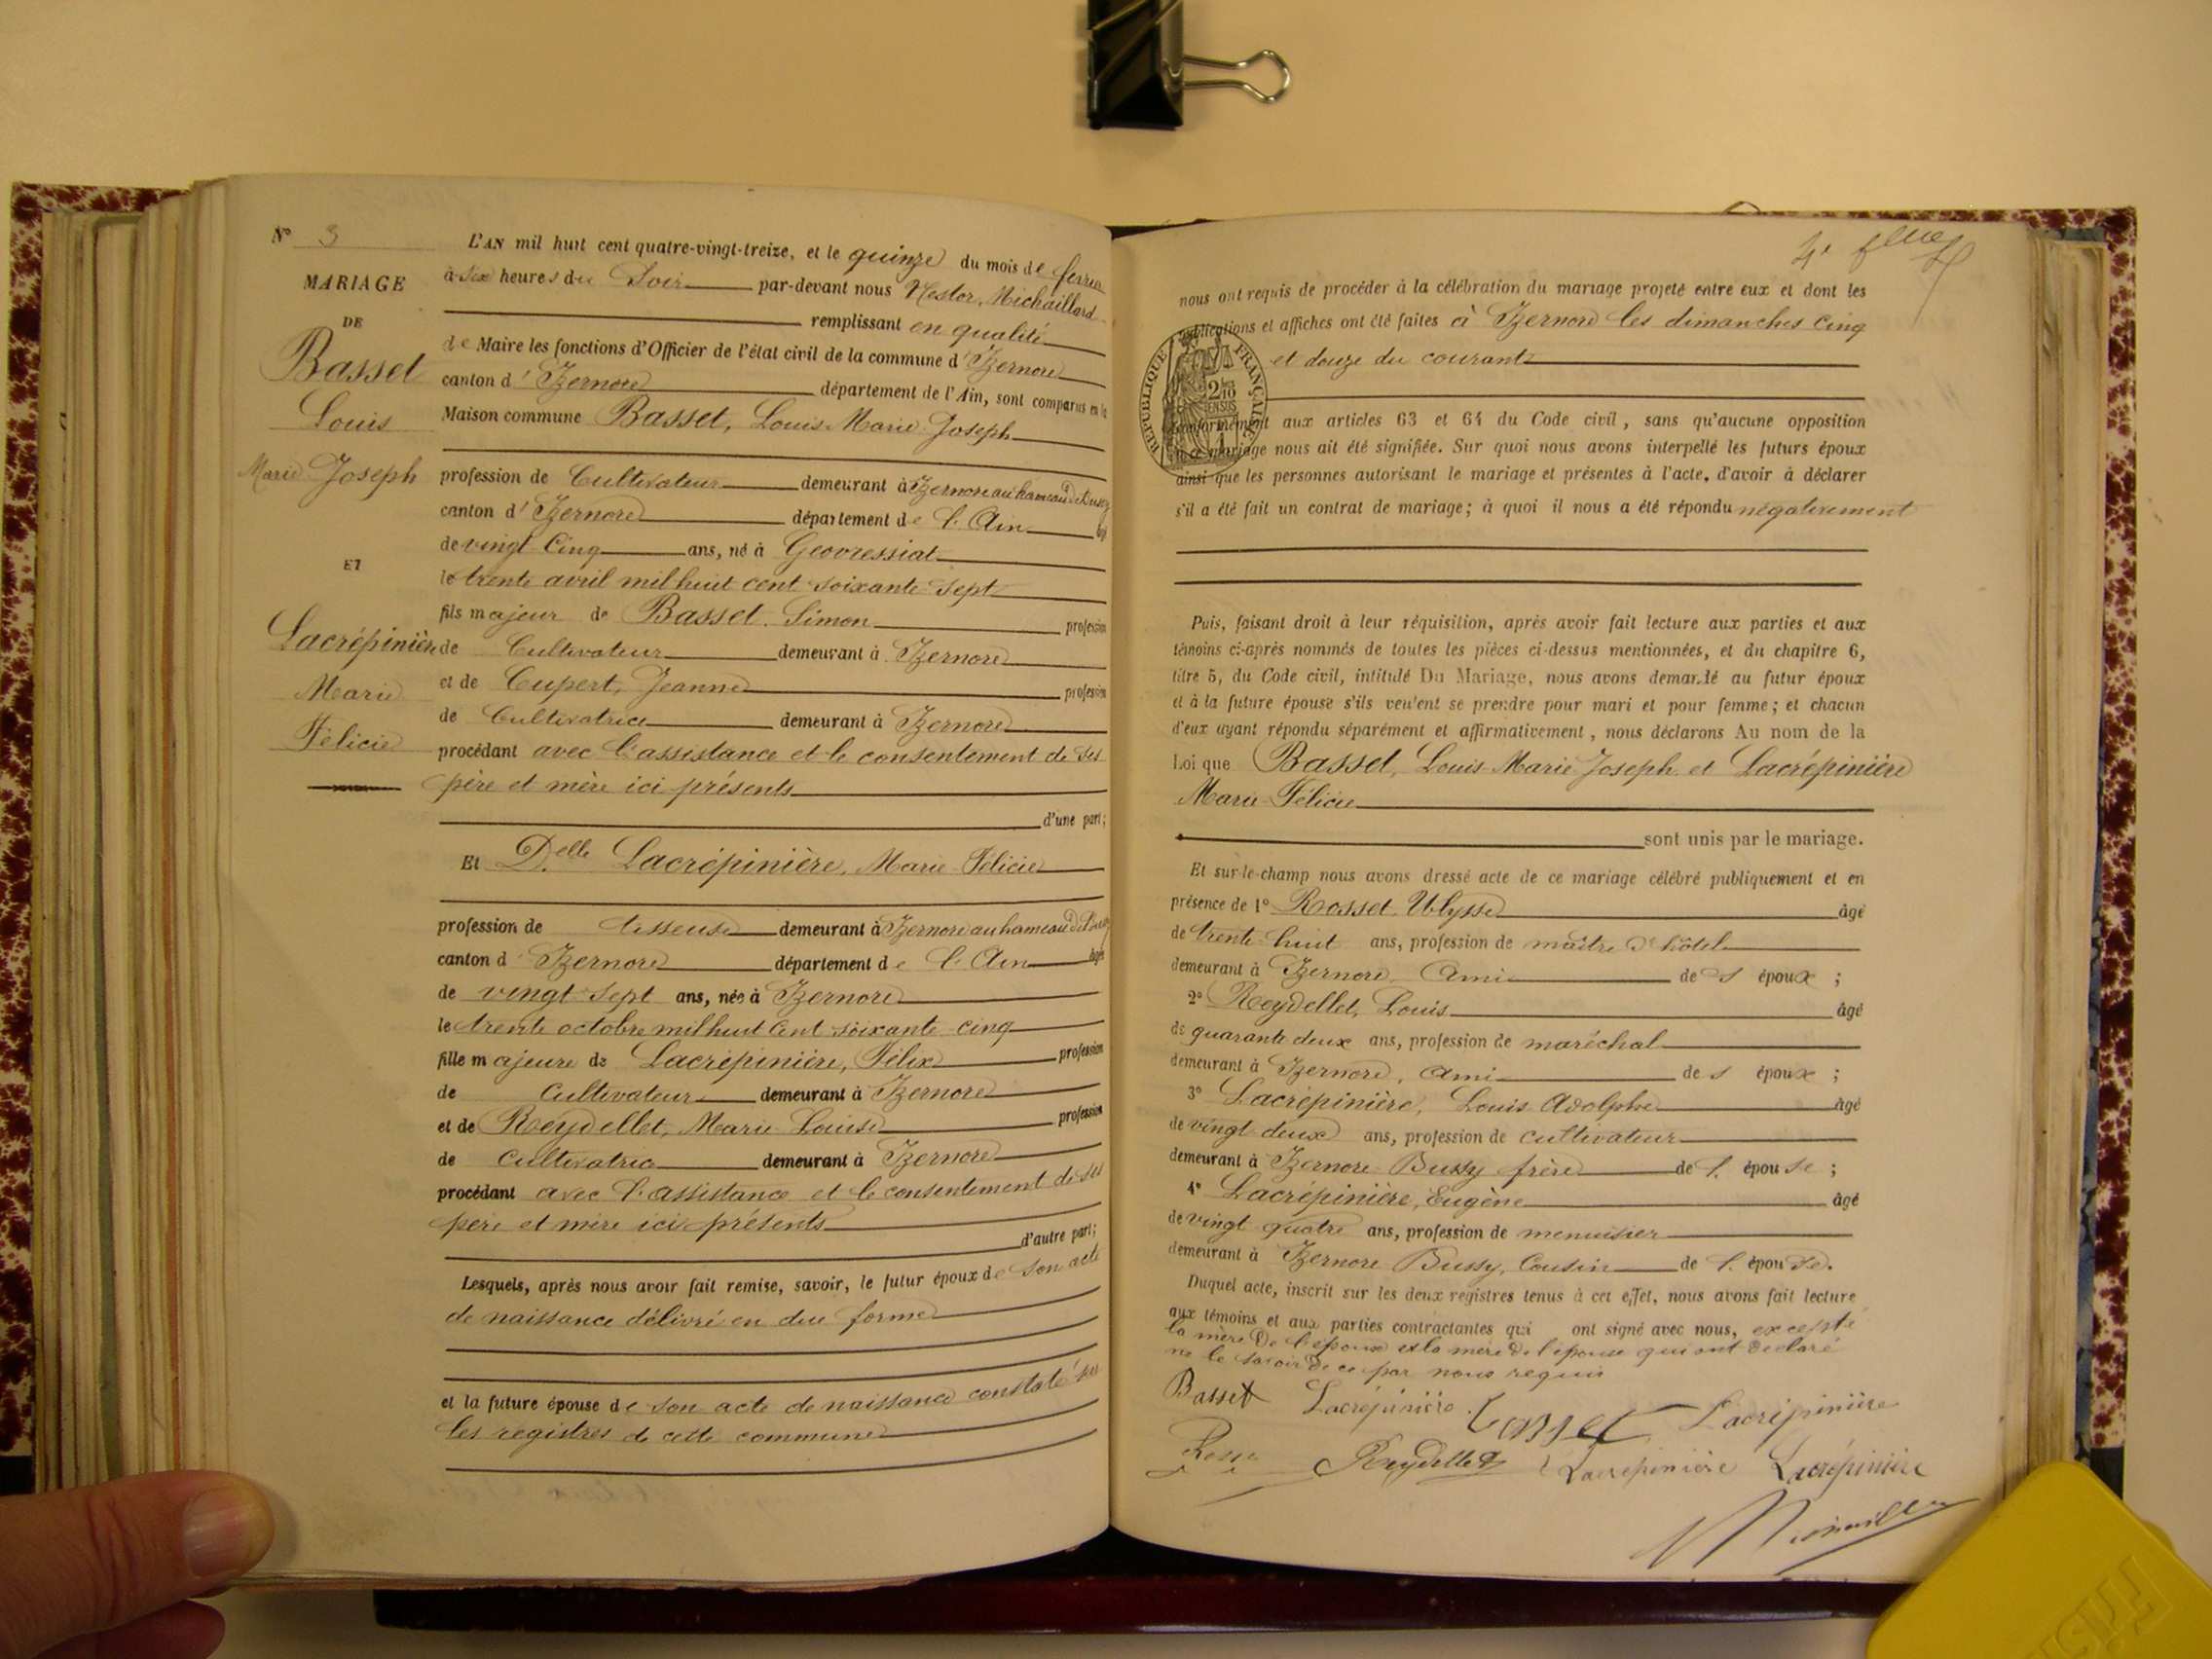 N° 3
MARIAGE
DE
Basset
Louis
Marie Joseph
ET
Lacrépinière
Marie
Félicie
L'AN mil huit cent quatre-vingt-treize, et le quinze du mois de
à six heures du Soir par-devant nous Nestor Michaillard
remplissant en qualité
de Maire les fonctions d'Officier de l'état civil de la commune d'Izernore
canton d'Izernore département de l'Ain, sont comparus en la
Maison commune Basset, Louis Marie Joseph
profession de Cultivateur demeurant à Izernore au hameau de Bussy
canton d'Izernore département de l'Ain âgé
de vingt cinq ans, né à Geovressiat
le trente avril mil huit cent soixante sept
fils majeur de Basset Simon profession
de Cultivateur demeurant à Izernore
et de Cupert, Jeanne profession
de Cultivatrice demeurant à Izernore
procédant avec l'assistance et le consentement de ses
père et mère ici présents
d'une part;
Et Delle Lacrépinière, Marie Félicie
profession de tisseuse demeurant à Izernore au hameau de Bussy
canton d'Izernore département de l'Ain âgée
de vingt sept ans, née à Izernore
le trente octobre mil huit cent soixante cinq
fille majeure de Lacrépinière, Félix profession
de Cultivateur demeurant à Izernore
et de Reydellet, Marie Louise profession
de Cultivatrice demeurant à Izernore
procédant avec l'assistance et le consentement de ses
père et mère ici présents
d'autre part;
Lesquels, après nous avoir fait remise, savoir, le futur époux de son acte
de naissance délivré en due forme
et la future épouse de son acte de naissance constaté sur
les registres de cette commune
nous ont requis de procéder à la célébration du mariage projeté entre eux et dont les
publications et affiches ont été faites à Izernore les dimanches cinq
et douze du courant
RÉPUBLIQUE FRANÇAISE
conformément aux articles 63 et 64 du Code civil, sans qu'aucune opposition
à ce mariage nous ait été signifiée. Sur quoi nous avons interpellé les futurs époux
ainsi que les personnes autorisant le mariage et présentes à l'acte, d'avoir à déclarer
s'il a été fait un contrat de mariage; à quoi il nous a été répondu négativement
Puis, faisant droit à leur réquisition, après avoir fait lecture aux parties et aux
témoins ci-après nommés de toutes les pièces ci-dessus mentionnées, et du chapitre 6,
titre 5, du Code civil, intitulé Du Mariage, nous avons demandé au futur époux
et à la future épouse s'ils veulent se prendre pour mari et pour femme; et chacun
d'eux ayant répondu séparément et affirmativement, nous déclarons Au nom de la
Loi que Basset, Louis Marie Joseph et Lacrépinière
Marie Félicie
sont unis par le mariage.
Et sur-le-champ nous avons dressé acte de ce mariage célébré publiquement et en
présence de 1° Rosset Ulysse âgé
de trente huit ans, profession de maître d'hôtel
demeurant à Izernore Ami des époux;
2° Reydellet, Louis âgé
de quarante deux ans, profession de maréchal
demeurant à Izernore, ami des époux;
3° Lacrépinière, Louis Adolphe âgé
de vingt deux ans, profession de cultivateur
demeurant à Izernore Bussy frère de l'épouse;
4° Lacrépinière, Eugène âgé
de vingt quatre ans, profession de menuisier
demeurant à Izernore Bussy, Cousin de l'épouse.
Duquel acte, inscrit sur les deux registres tenus à cet effet, nous avons fait lecture
aux témoins et aux parties contractantes qui ont signé avec nous, excepté
la mère de l'époux et la mère de l'épouse qui ont déclaré
ne le savoir de ce par nous requis
Basset Lacrépinière Basset Lacrépinière
Reydellet Lacrépinière Lacrépinière